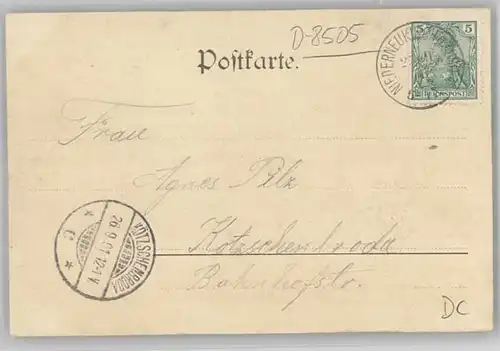 D-8505
Postkarte.
5 5
REICHSPOST
Frau
Agnes Pilz
Kötzschenbroda
Bahnhofstr.
KÖTZSCHENBRODA
26.9.01.12-1V.
* c *
DC